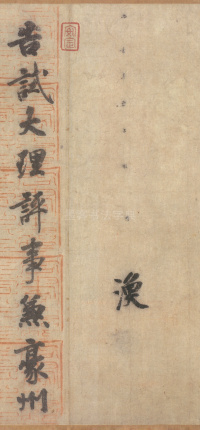 渙
告試大理評事兼豪州